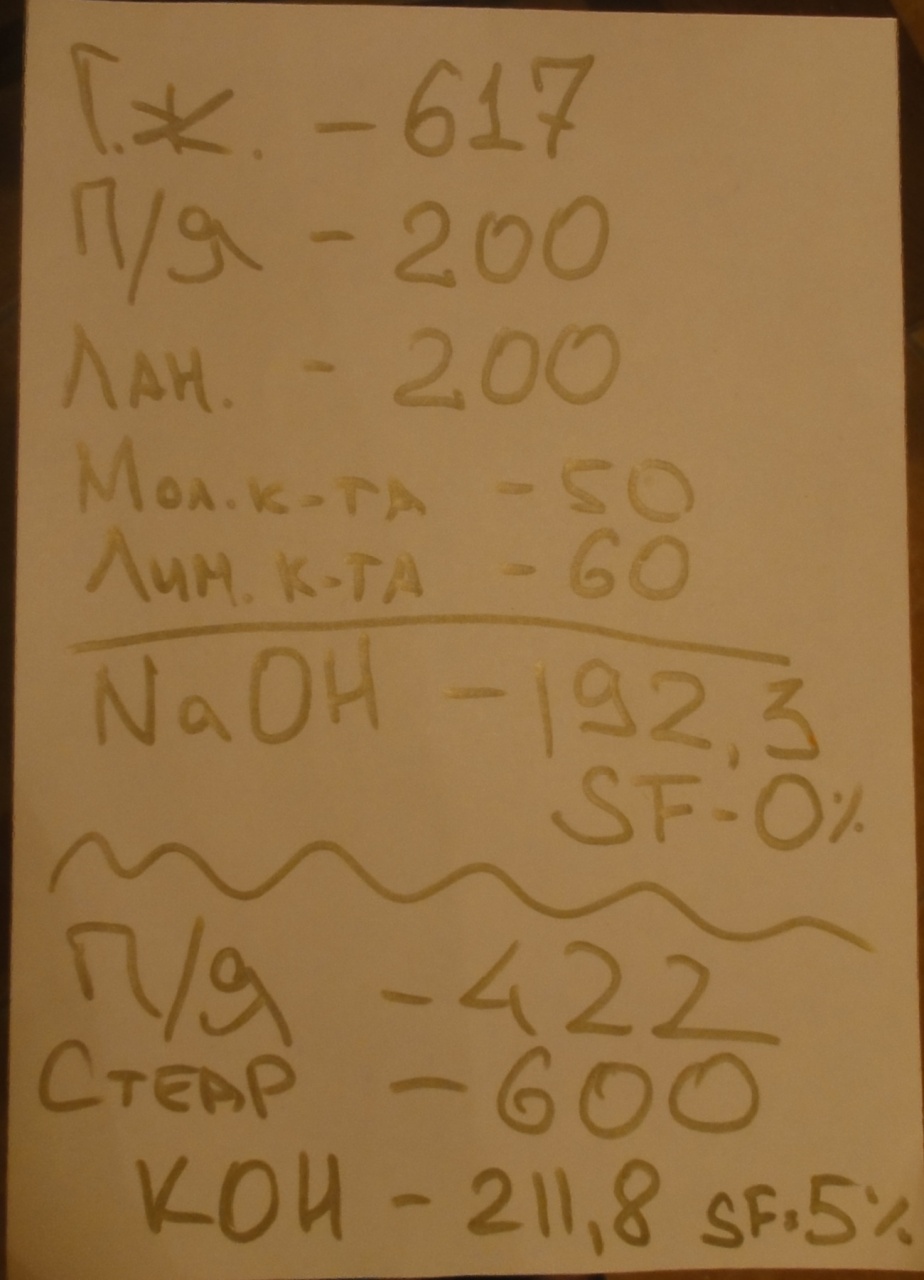 Г.Ж. - 617
П/Я - 200
ЛАН. - 200
Мол. к-ТА - 50
Лим. к-ТА - 60
NaOH - 192,3
SF - 0%
П/Я - 422
СТЕАР - 600
KOH - 211,8 SF. 5%